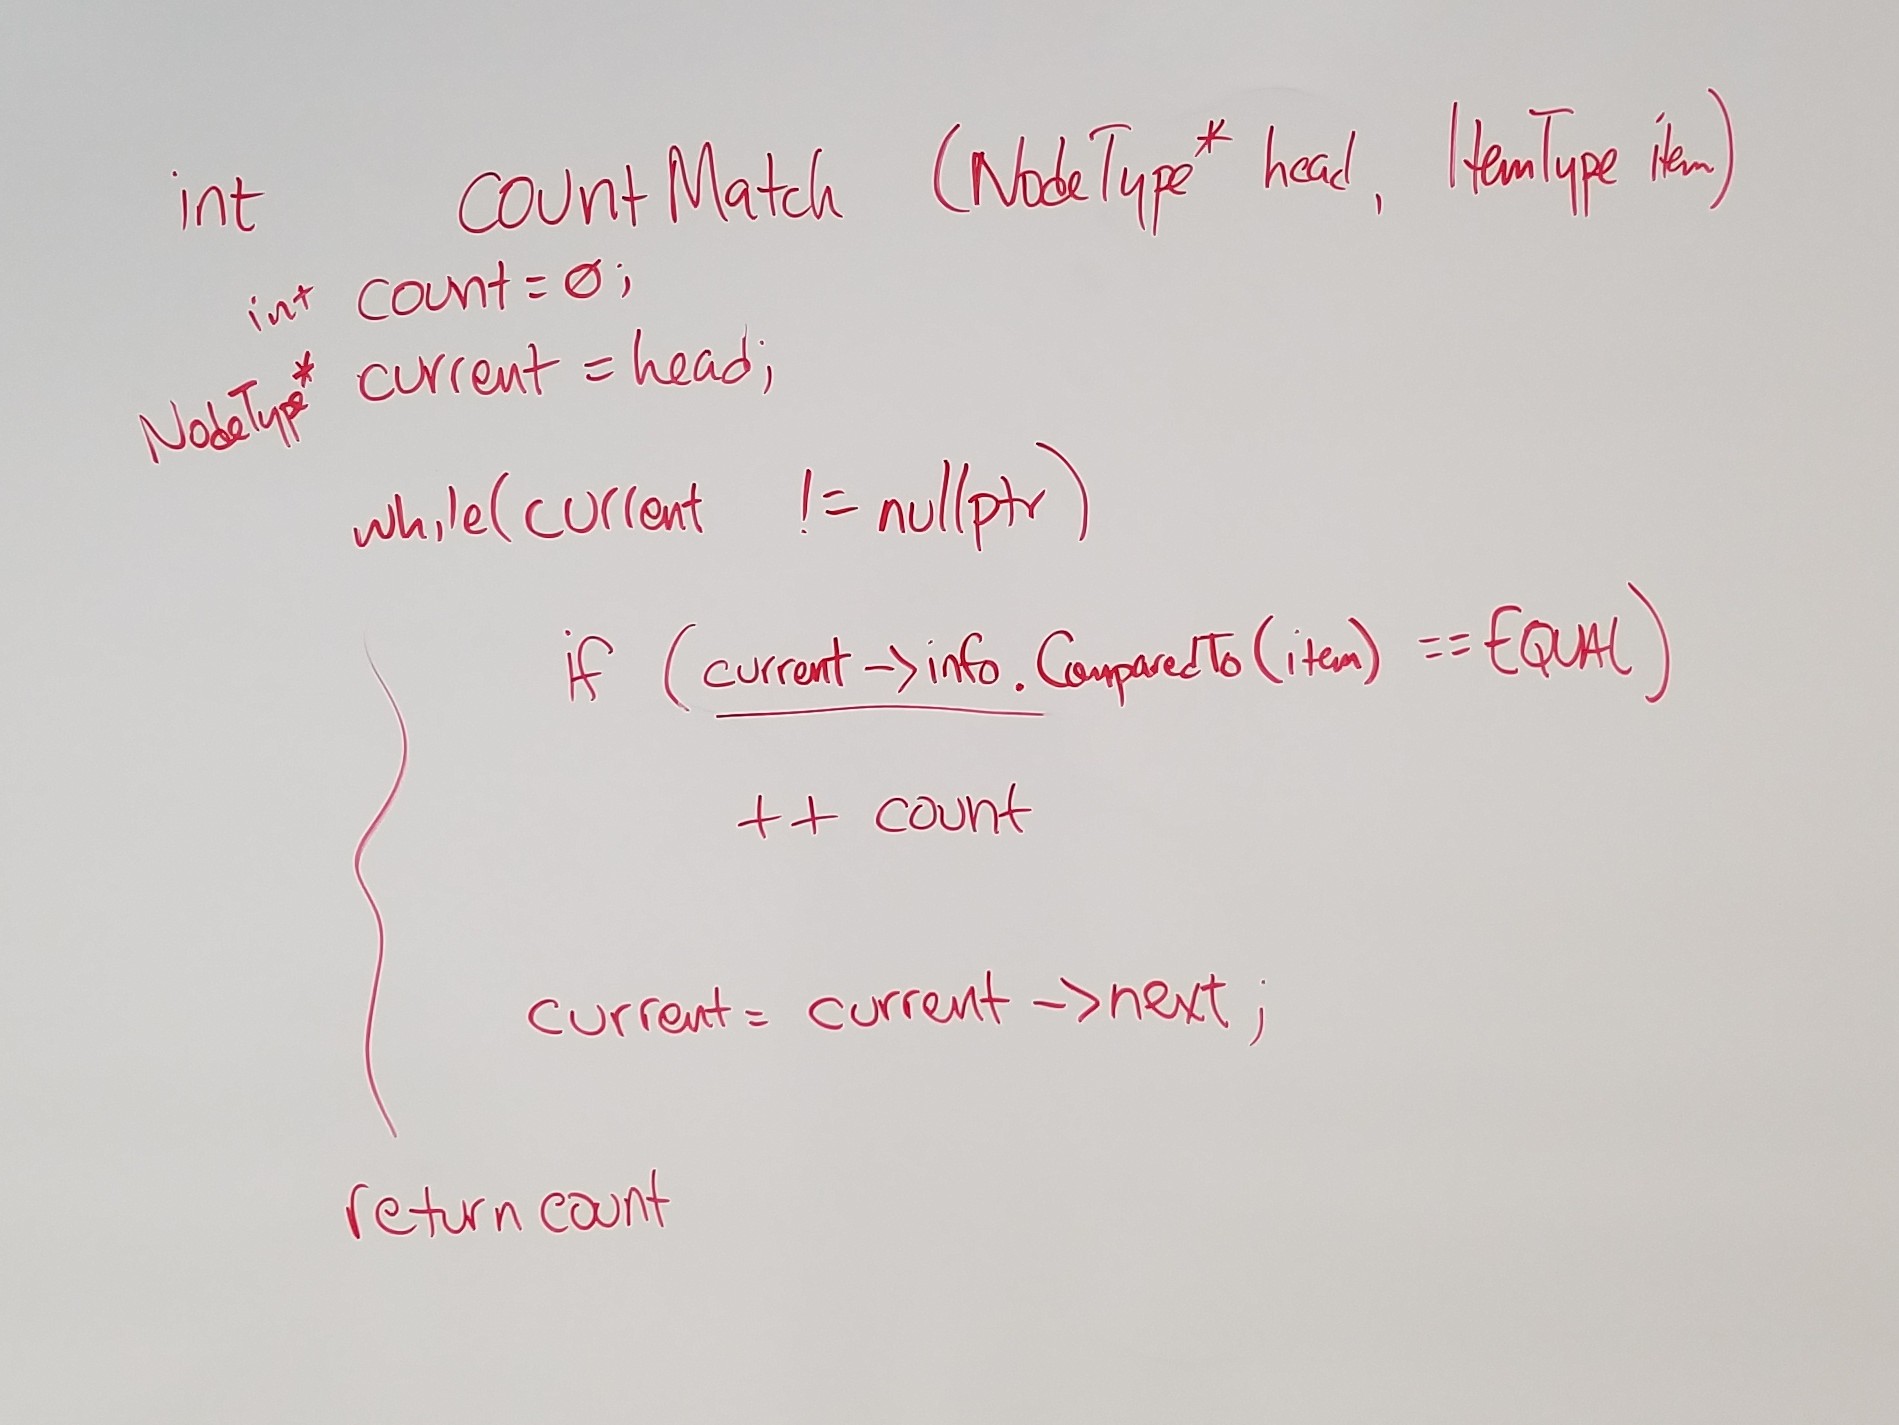 int countMatch (NodeType* head, ItemType item)
int count = 0;
NodeType* current = head;
while(current != nullptr)
if (current->info.ComparedTo(item) == EQUAL)
++ count
current = current ->next;
return count